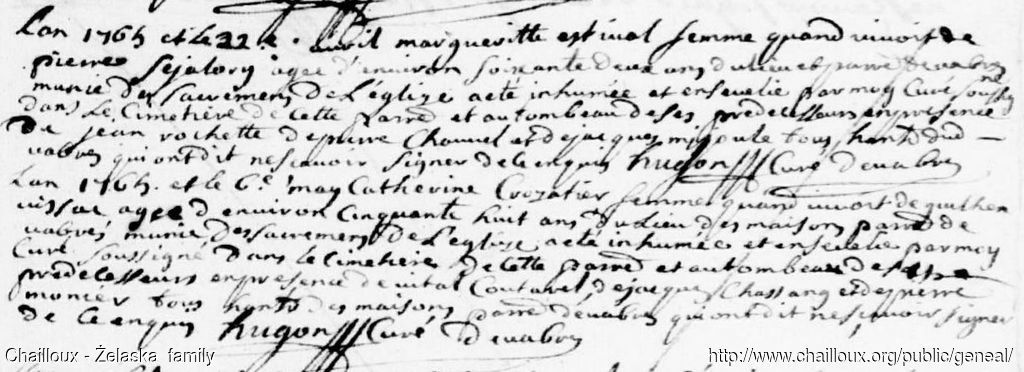 Lan 1765 et le 22e. avril margueritte estival femme quand vivoit de
pierre Sejalory agée d'environ soixante deux ans du lieu et parré devabres
munie des sacremens de L'eglize a eté inhumée et ensevelie par moy Curé soussigné
dans Le Cimetière de cette parré et au tombeau de ses predecesseurs en presence
de jean rochette de pierre Chauvel et de jacques mizoule tous hants dud
vabres qui ont dit ne scavoir signer de ce enquis hugon Curé devabres
Lan 1765. et le 6e may Catherine Crozatier femme quand vivoit de guilhen
vissac agée d'environ Cinquante huit ans du Lieu des maisons parré de
vabres munie des sacremens de L'eglize a eté inhumée et ensevelie par moy
Curé soussigné dans le Cimetiere de cette parré et au tombeau de ses
predecesseurs en presence de vital Coutarel, de jacques Chassang et de pierre
monier tous hants des maisons parré devabres qui ont dit ne scavoir signer
de ce enquis hugon Curé devabres
Chailloux - Żelaska family
http://www.chailloux.org/public/geneal/